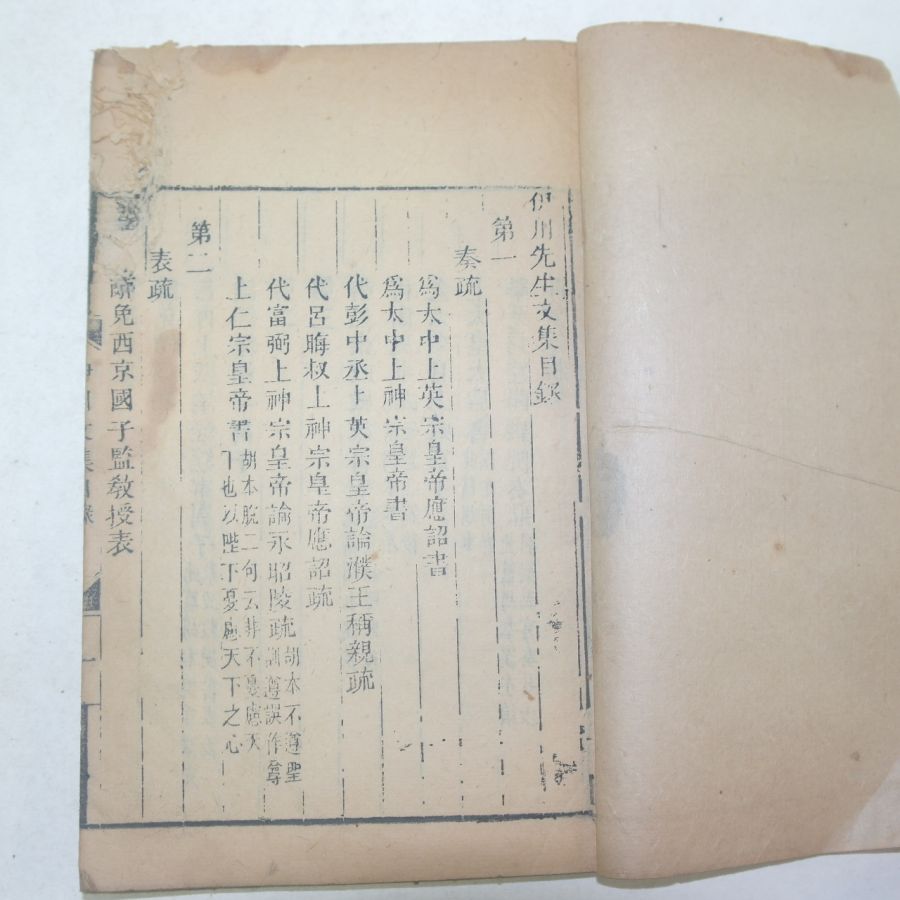 伊川先生文集目錄
第一
奏疏
爲太中上英宗皇帝應詔書
爲太中上神宗皇帝書
代彭中丞上英宗皇帝論濮王稱親疏
代呂晦叔上神宗皇帝應詔疏
代富弼上神宗皇帝論永昭陵疏 胡本不遵聖訓遵誤作尊
上仁宗皇帝書 胡本脫二句云非不憂慮天下也以陛下憂慮天下之心
第二
表疏
辭免西京國子監敎授表
伊川文集目錄 一